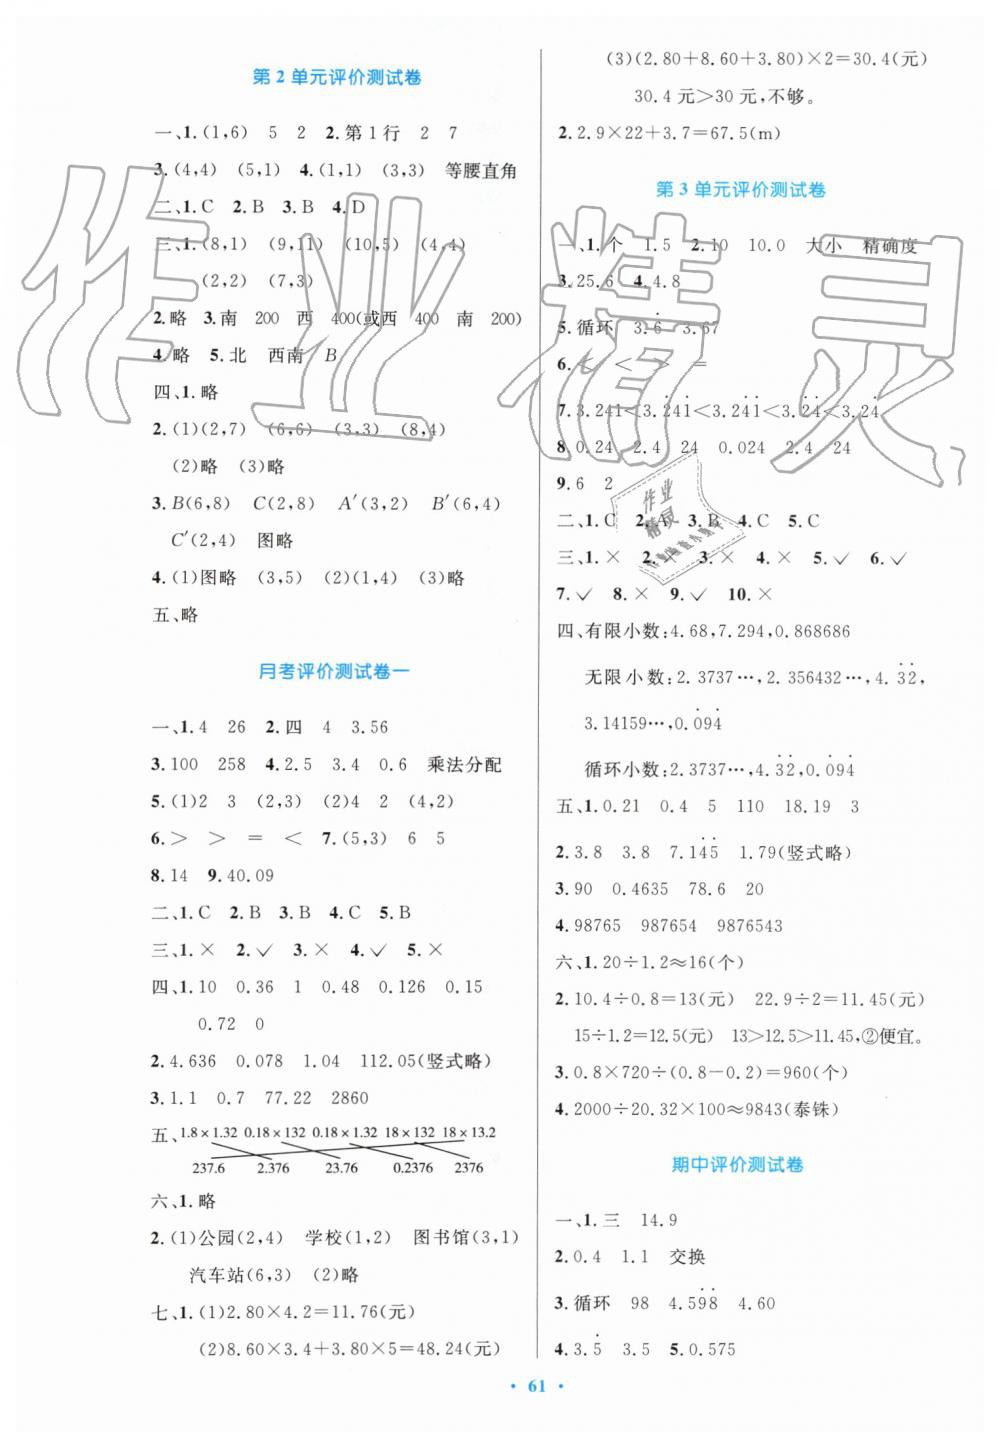 第2单元评价测试卷
一、1.(1,6)  5  2  2.第1行  2  7
3.(4,4)  (5,1)  4.(1,1)  (3,3)  等腰直角
二、1.C  2.B  3.B  4.D
三、1.(8,1)  (9,11)  (10,5)  (4,4)
(2,2)  (7,3)
2.略  3.南  200  西  400(或西  400  南  200)
4.略  5.北  西南  B
四、1.略
2.(1)(2,7)  (6,6)  (3,3)  (8,4)
(2)略  (3)略
3.B(6,8)  C(2,8)  A′(3,2)  B′(6,4)
C′(2,4)  图略
4.(1)图略  (3,5)  (2)(1,4)  (3)略
五、略
月考评价测试卷一
一、1.4  26  2.四  4  3.56
3.100  258  4.2.5  3.4  0.6  乘法分配
5.(1)2  3  (2,3)  (2)4  2  (4,2)
6.>  >  =  <  7.(5,3)  6  5
8.14  9.40.09
二、1.C  2.B  3.B  4.C  5.B
三、1.×  2.✓  3.×  4.✓  5.×
四、1.10  0.36  1  0.48  0.126  0.15
0.72  0
2.4.636  0.078  1.04  112.05(竖式略)
3.1.1  0.7  77.22  2860
五、1.8×1.32  0.18×132  0.18×1.32  18×132  18×13.2
237.6  2.376  23.76  0.2376  2376
六、1.略
2.(1)公园(2,4)  学校(1,2)  图书馆(3,1)
汽车站(6,3)  (2)略
七、1.(1)2.80×4.2=11.76(元)
(2)8.60×3.4+3.80×5=48.24(元)
(3)(2.80+8.60+3.80)×2=30.4(元)
30.4元>30元,不够。
2.2.9×22+3.7=67.5(m)
第3单元评价测试卷
一、1.个  1.5  2.10  10.0  大小  精确度
3.25.6  4.4.8
5.循环  3.6̇  3.67
6.<  <  >  =
7.3.241<3.2̇41̇<3.24̇1̇<3.2̇4̇<3.24̇
8.0.24  2.4  24  0.024  2.4  24
9.6  2
二、1.C  2.A  3.B  4.C  5.C
三、1.×  2.×  3.×  4.×  5.✓  6.✓
7.✓  8.×  9.✓  10.×
四、有限小数:4.68,7.294,0.868686
无限小数:2.3737…,2.356432…,4.3̇2̇,
3.14159…,0.0̇94̇
循环小数:2.3737…,4.3̇2̇,0.0̇94̇
五、1.0.21  0.4  5  110  18.19  3
2.3.8  3.8  7.14̇5̇  1.79(竖式略)
3.90  0.4635  78.6  20
4.98765  987654  9876543
六、1.20÷1.2≈16(个)
2.10.4÷0.8=13(元)  22.9÷2=11.45(元)
15÷1.2=12.5(元)  13>12.5>11.45,②便宜。
3.0.8×720÷(0.8-0.2)=960(个)
4.2000÷20.32×100≈9843(泰铢)
期中评价测试卷
一、1.三  14.9
2.0.4  1.1  交换
3.循环  98  4.59̇8̇  4.60
4.3.5̇  3.5  5.0.575
· 61 ·
作业精灵
作业
精灵